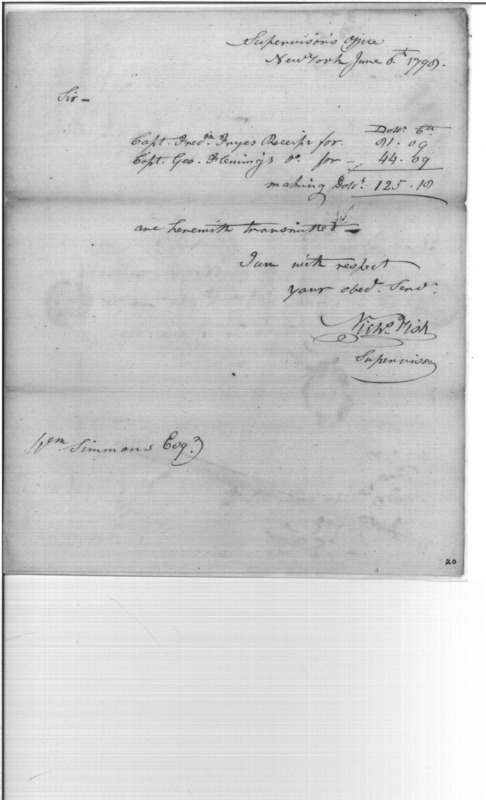 Supervisor's Office
New York June 6th 1798.
Sir –
Dolls. Cts
Capt. Fredk. Fryes Receipt for 81.09
Capt. Geo. Fleming's Do. for – 44.09
making Dolls. 125.18
are herewith transmitted –
I am with respect
your obedt. Servt.
Nichs. Fish
Supervisor
Wm Simmons Esqr.
20